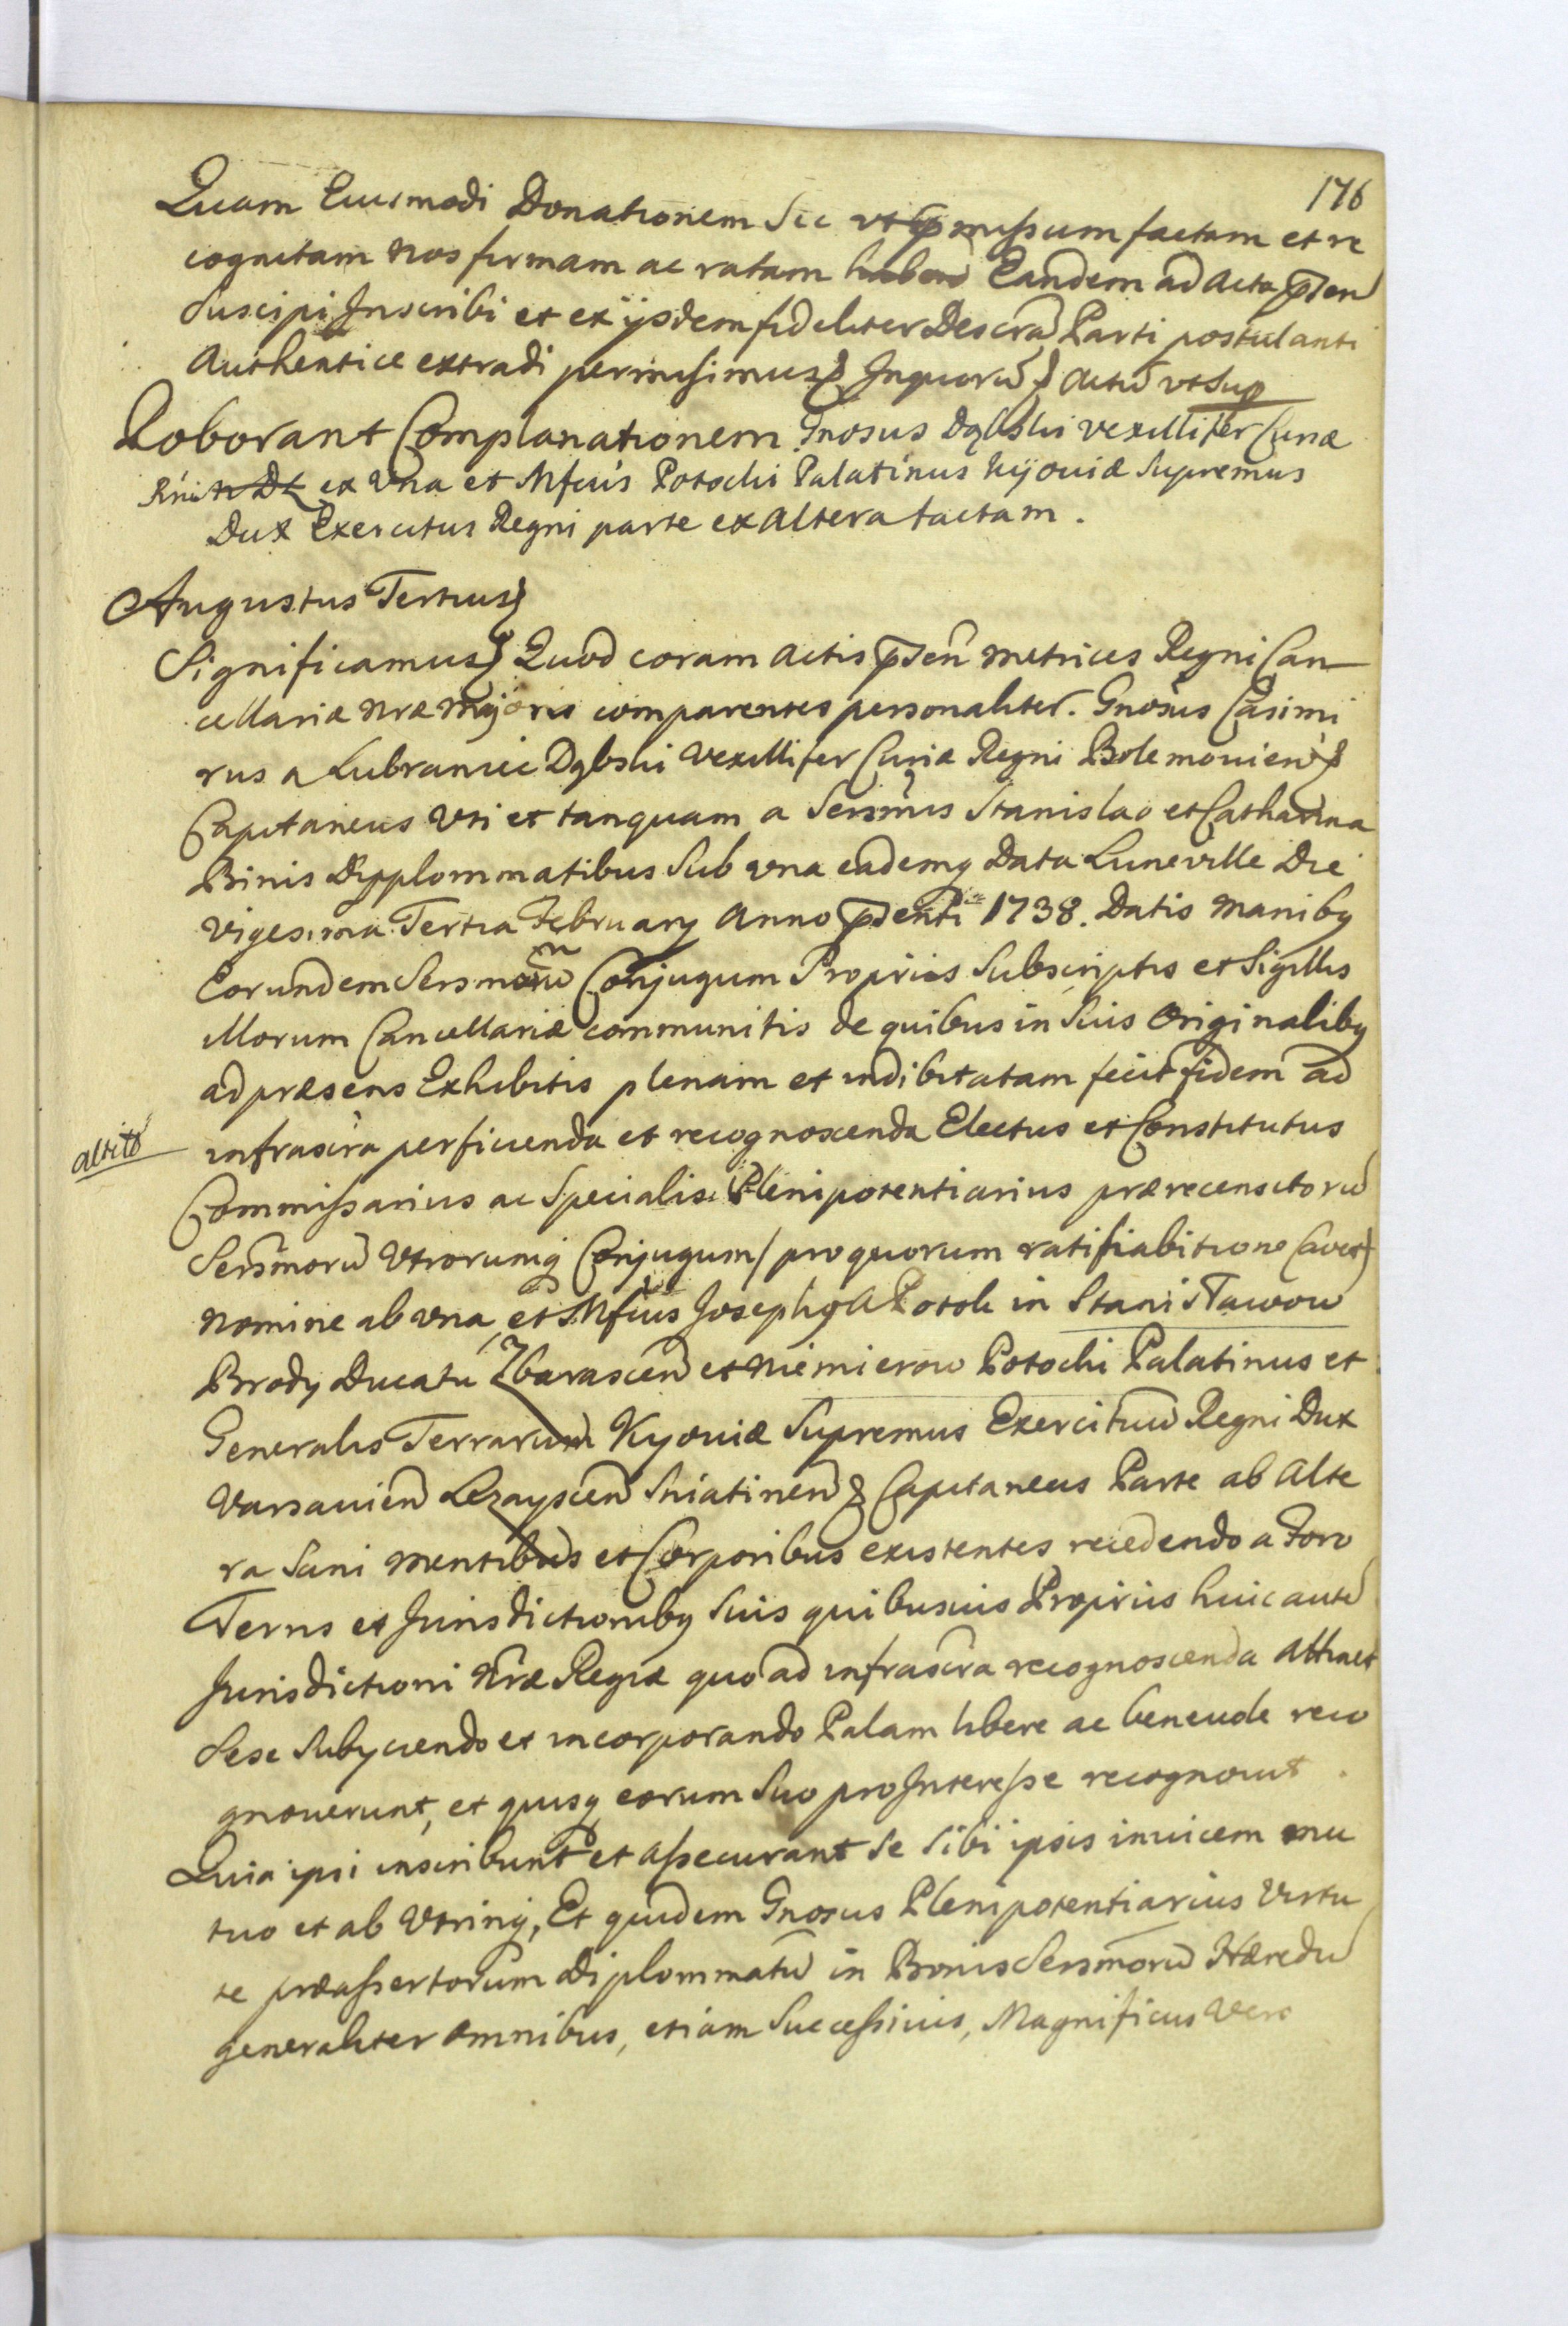 176
Quam Eiusmodi Donationem Sic ut p̄missum factam et re
cognitam Nos firmam ac ratam haben̄ Eandem ad Acta p̄sen
Suscipi Inscribi et ex ijsdem fideliter Descra Parti postulanti
Authentice extradi permisimus Inquorū Actū vt Sup
Roborant Complanationem Gnosus Dąbski vexillifer Curiæ
Rni ex Vna et Mfcus Potocki Palatinus Kyjouiæ Supremus
Dux Exercitus Regni parte ex Altera factam.
Augustus Tertius
Significamus Quod coram Actis p̄sen̄ Metrices Regni Can
cellariæ Nræ Majoris comparentes personaliter. Gnosus Casimi
rus a Lubraniec Dąbski Vexillifer Curiæ Regni Bolemouien̄
Capitaneus Vti et tanquam a Sersmis Stanislao et Catharina
Binis Dypplommatibus Sub vna eademq Data Luneville Die
Vigesima Tertia February Anno p̄senti 1738. Datis Manibq
Eorundem Sersmorū Conjugum Propriis Subscriptis et Sigillis
Illorum Cancellariæ communitis de quibus in Suis Originalibq
ad præsens Exhibitis plenam et indibitatam fecit fidem ad
altito
infrascra perficienda et recognoscenda Electus et Constitutus
Commissarius ac Specialis Plenipotentiarius prærecensitorū
Sersmorū Vtrorumq Conjugum/ pro quorum ratifiabitione Cauet
Nomine ab vna et Mfcus Josephq a Potok in Stanisławow
Brody Ducatu Zbarascen̄ et Niemierow Potocki Palatinus et
Generalis Terrarum Kyouiæ Supremus Exercituū Regni Dux
Varsauien̄ Lezayscen̄ Sniatinen̄ Capitaneus Parte ab Alte
ra Sani Mentibus et Corporibus existentes recedendo a Foro
Terris et Jurisdictionibq Suis quibusuis Propriis huic autē
Jurisdictioni Nræ Regiæ quo ad infrascra recognoscenda Attinet
Sese Subyciendo et incorporando Palam libere ac beneuole reco
gnouerunt, et quisq eorum Suo pro Interesse recognouit
Quia ipsi inscribunt et assecurant Se Sibi ipsis inuicem mu
tuo et ab Vtrinq, Et quidem Gnosus Plenipotentiarius Virtu
te præassertorum Diplommatū in Bonis Sersmorū Hæredū
generaliter omnibus, etiam Successiuis, Magnificus Vero